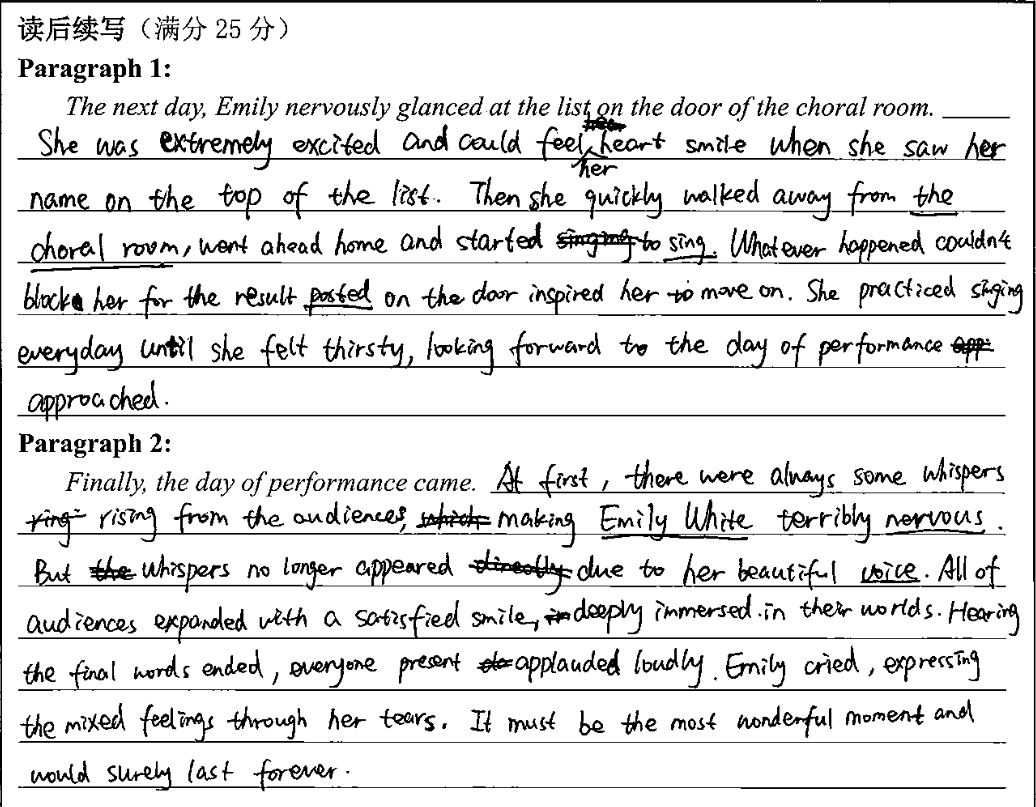 读后续写（满分 25 分）
Paragraph 1:
The next day, Emily nervously glanced at the list on the door of the choral room.
She was extremely excited and could feel her heart smile when she saw her
name on the top of the list. Then she quickly walked away from the
choral room, went ahead home and started to sing. Whatever happened couldn't
block her for the result posted on the door inspired her to move on. She practiced singing
everyday until she felt thirsty, looking forward to the day of performance
approached.
Paragraph 2:
Finally, the day of performance came. At first, there were always some whispers
rising from the audiences, making Emily White terribly nervous.
But whispers no longer appeared due to her beautiful voice. All of
audiences expanded with a satisfied smile, deeply immersed in their worlds. Hearing
the final words ended, everyone present applauded loudly. Emily cried, expressing
the mixed feelings through her tears. It must be the most wonderful moment and
would surely last forever.